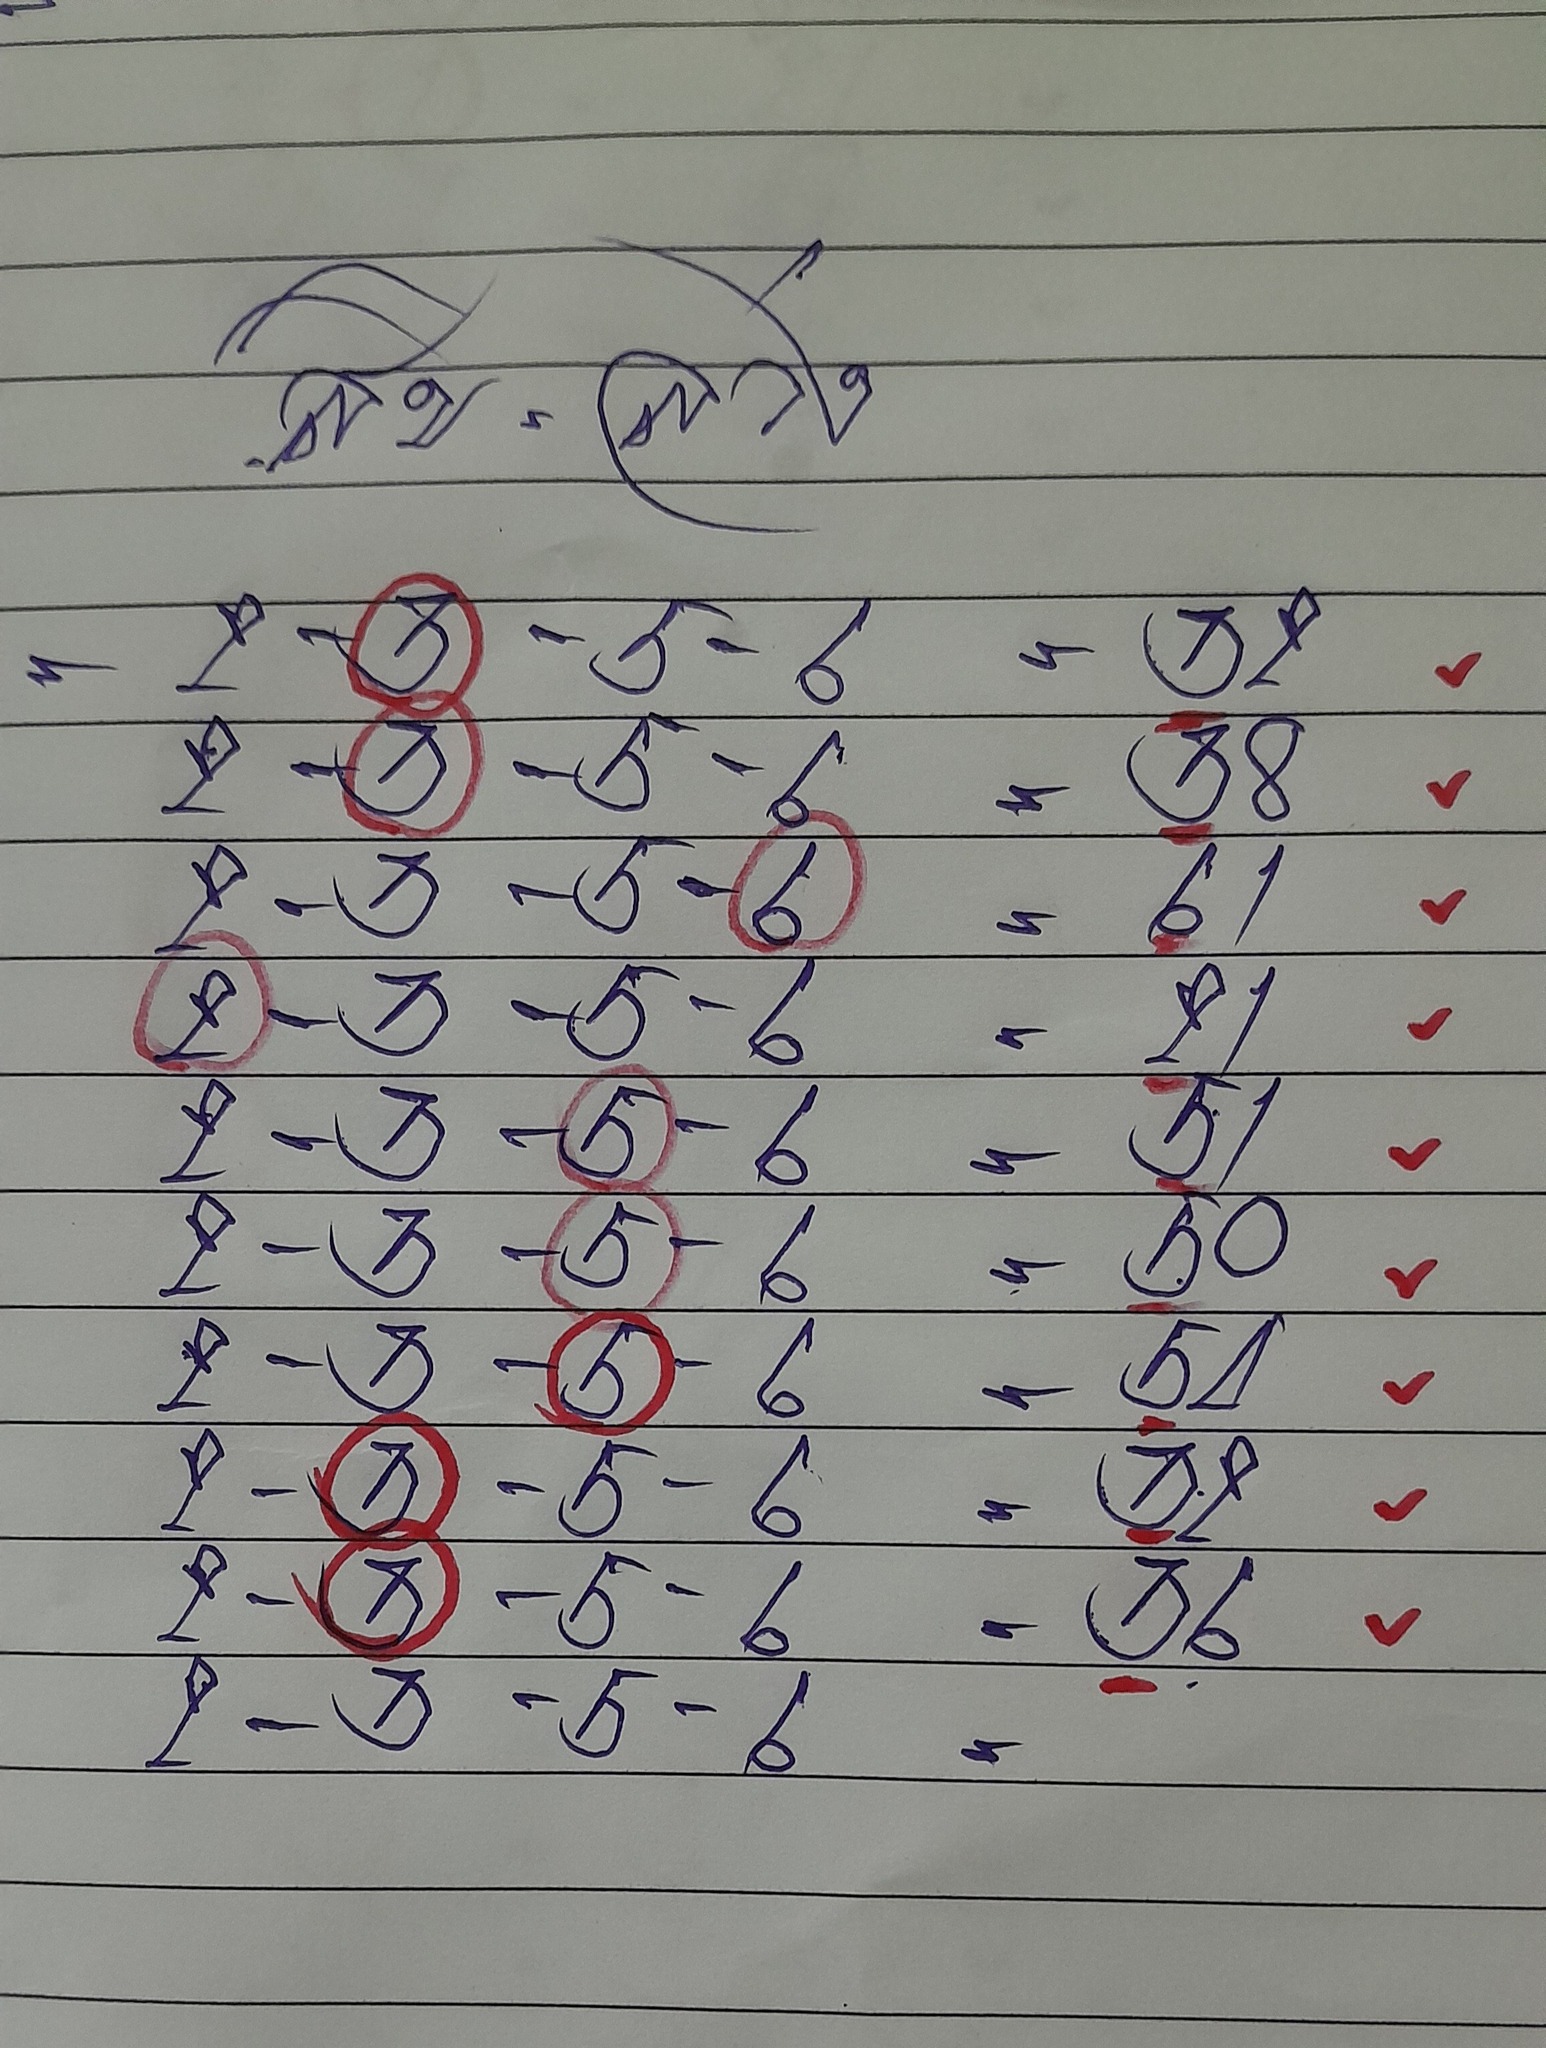 สิบ - ล่าง
= 2 - 3 - 5 - 6 = 32 ✓
2 - 3 - 5 - 6 = 38 ✓
2 - 3 - 5 - 6 = 61 ✓
2 - 3 - 5 - 6 = 21 ✓
2 - 3 - 5 - 6 = 51 ✓
2 - 3 - 5 - 6 = 50 ✓
2 - 3 - 5 - 6 = 54 ✓
2 - 3 - 5 - 6 = 32 ✓
2 - 3 - 5 - 6 = 36 ✓
2 - 3 - 5 - 6 =